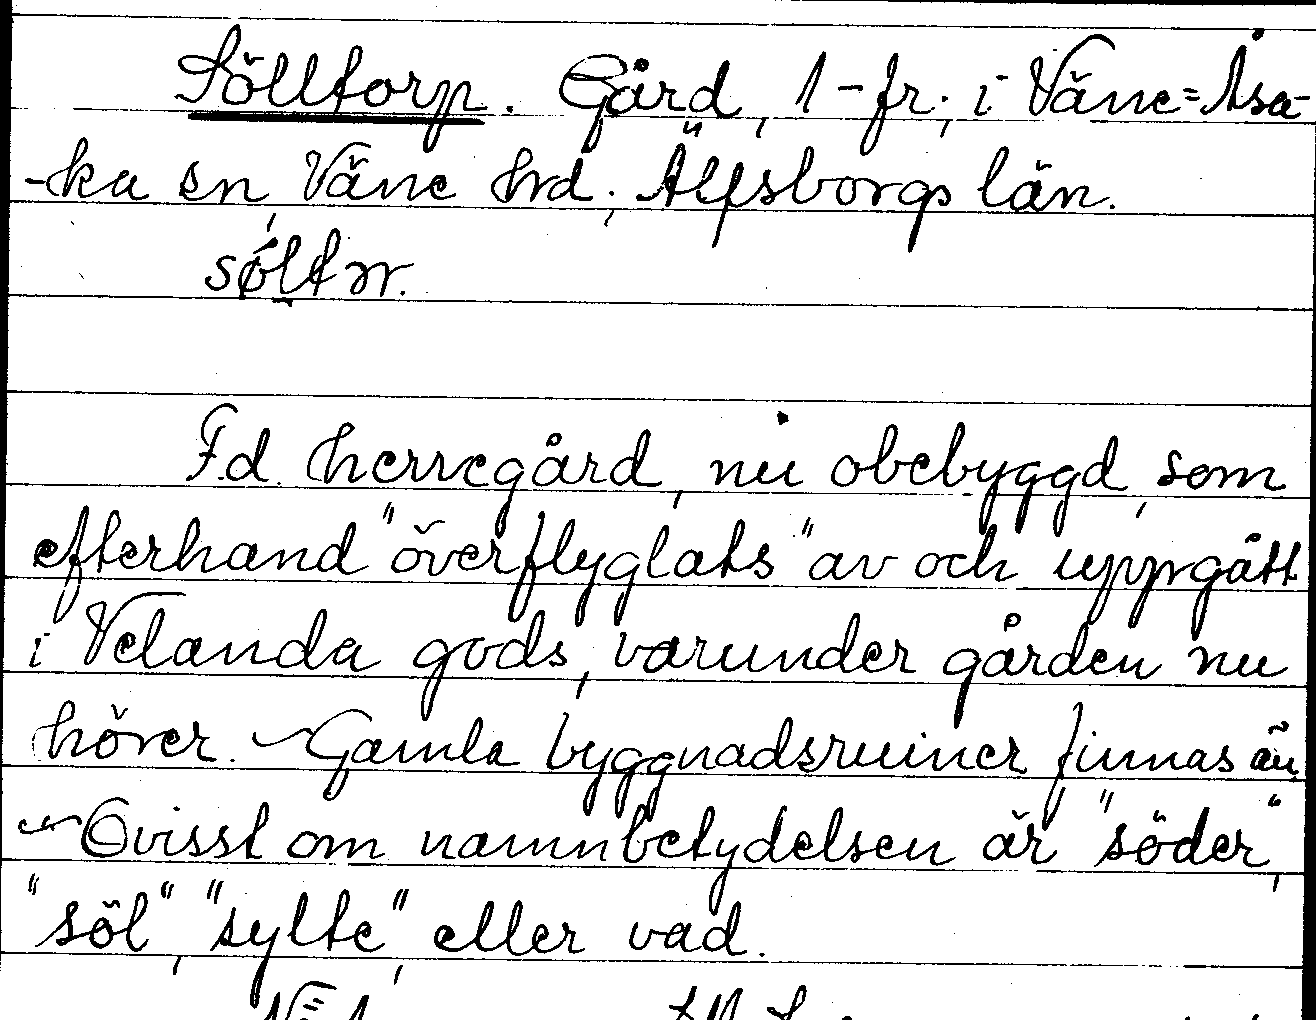 Sölltorp. Gård, 1-fr., i Väne=Åsa-
-ka sn, Väne hrd., Älfsborgs län.
sǿltrr.
F.d. herregård, nu obebyggd, som
efterhand "överflyglats" av och uppgått
i Velanda gods, varunder gården nu
hörer. ~ Gamla byggnadsruiner finnas än.
~ Ovisst om namnbetydelsen är "söder",
"söl", "sylte", eller vad.